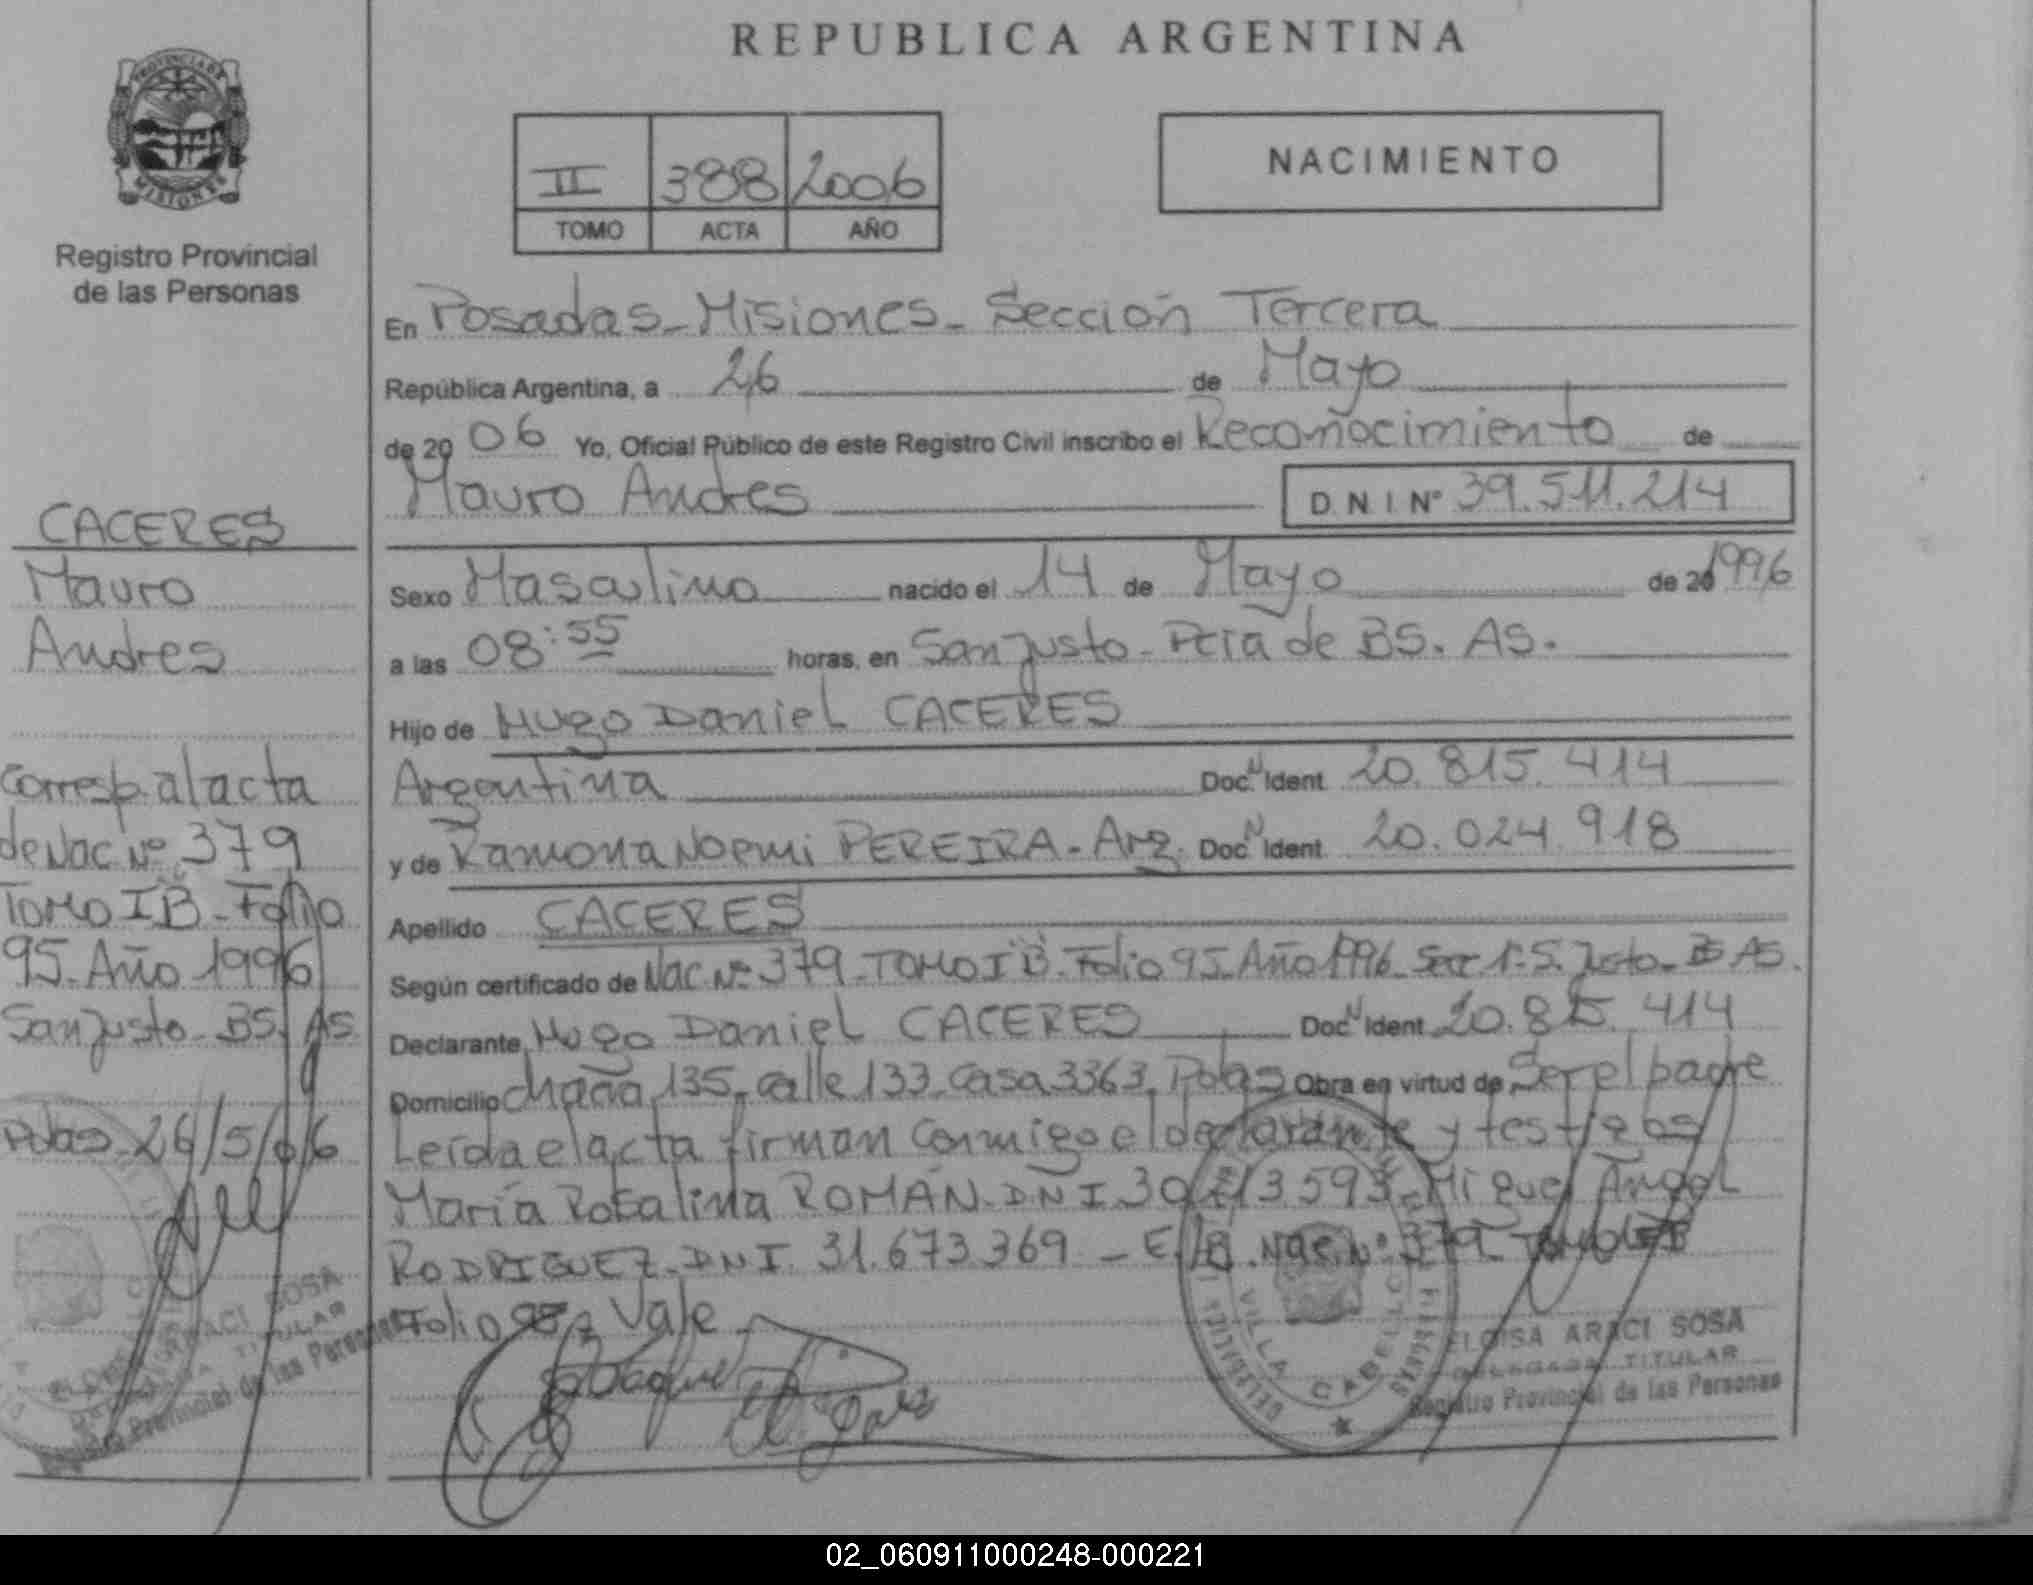 REPUBLICA ARGENTINA
PROVINCIA DE
MISIONES
Registro Provincial
de las Personas
II 388 2006
TOMO ACTA AÑO
NACIMIENTO
En Posadas - Misiones - Sección Tercera
República Argentina, a 26 de Mayo
de 2006 Yo, Oficial Público de este Registro Civil inscribo el Reconocimiento de
Mauro Andres D N I Nº 39.511.214
Sexo Masculino nacido el 14 de Mayo de 20 1996
a las 08:55 horas, en San Justo - Pcia de BS. AS.
Hijo de Hugo Daniel CACERES
Argentina Doc. N Ident 20.815.414
y de Ramona Noemi PEREIRA - Arg. Doc. N Ident 20.024.918
Apellido CACERES
Según certificado de Nac. Nº 379 - TOMO I B - Folio 95 - Año 1996 - S. Justo - BS AS.
Declarante Hugo Daniel CACERES Doc. N Ident 20.815.414
Domicilio chacra 135 - calle 133 - casa 3363. Pdas Obra en virtud de Ser el padre
Leída el acta firman conmigo el declarante y testigos
María Rosalina ROMÁN - DNI 30. 13.593 Miguel Ángel
RODRIGUEZ - DNI. 31.673.369 - E/B. Nac. Nº 379
Folio Vale
CACERES
Mauro
Andres
Corresp. al acta
de Nac Nº 379
TOMO I B - Folio
95 - Año 1996
San Justo - BS. AS.
Pdas - 26/5/06
VILLA CABELLO
ELOISA ARACI SOSA
DELEGADA TITULAR
Registro Provincial de las Personas
ARACI SOSA
TITULAR
Provincial de las Personas
02_060911000248-000221